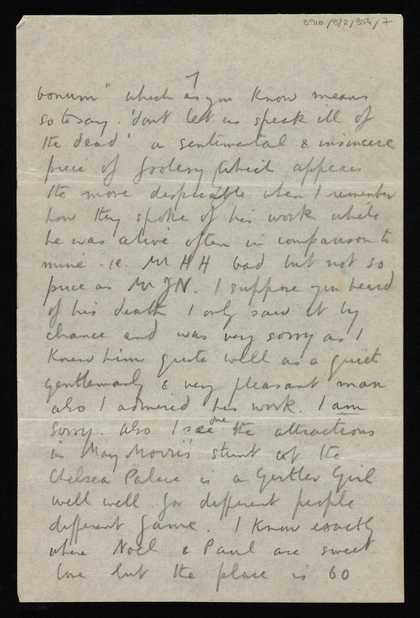 7
bonum" which as you know means
so to say. 'dont let us speak ill of
the dead' a sentimental & insincere
piece of foolery which appears
the more despicable when I remember
how they spoke of his work while
he was alive often in comparison to
mine. ie. Mr HH bad but not so
puce as Mr JN. I suppose you heard
of his death I only saw it by
chance and was very sorry as I
knew him quite well as a quiet
gentlemanly & very pleasant man
also I admired his work. I am
sorry. Also I see one the attractions
in May Morris's stunt at the
Chelsea Palace is a Gertler Girl
well well for different people
different game. I know exactly
where Noel & Paul are sweet
love but the place is 60